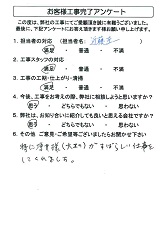 お客様工事完了アンケート
この度は、弊社の工事にてご愛顧頂き誠に有難うございました。
最後に、下記アンケートにお答え頂きます様お願い申し上げます。
1. 担当者の対応 (担当者名: )
満足 ・ 普通 ・ 不満
2. 工事スタッフの対応
満足 ・ 普通 ・ 不満
3. 工事の工期・仕上がり・清掃
満足 ・ 普通 ・ 不満
4. 今後、工事をお考えの際、弊社に相談しようと思いますか?
思う ・ どちらでもない ・ 思わない
5. 弊社は、お知り合いに紹介しても良いと思える会社ですか?
思う ・ どちらでもない ・ 思わない
6. その他 ご意見・ご希望等ございましたらお聞かせ下さい
がすばらしい仕事を
してくれました。